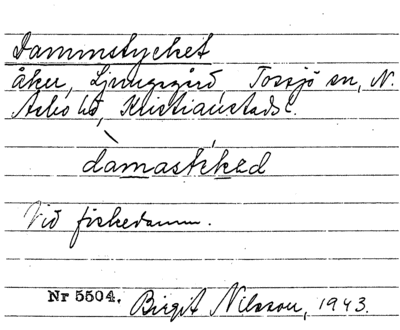 Dammstycket
åker, Ljungsgård, Tossjö sn, N.
Asbo hd, Kristianstads l.
dàmastéked
Vid fiskedamm.
Nr 5504. Birgit Nilsson, 1943.